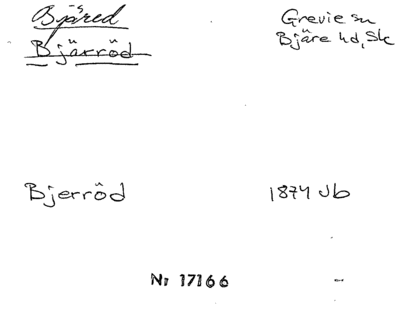 Bjäred
Grevie sn
Bjärröd
Bjäre hd, Sk
Bjerröd
1874 Jb
Nr 17166